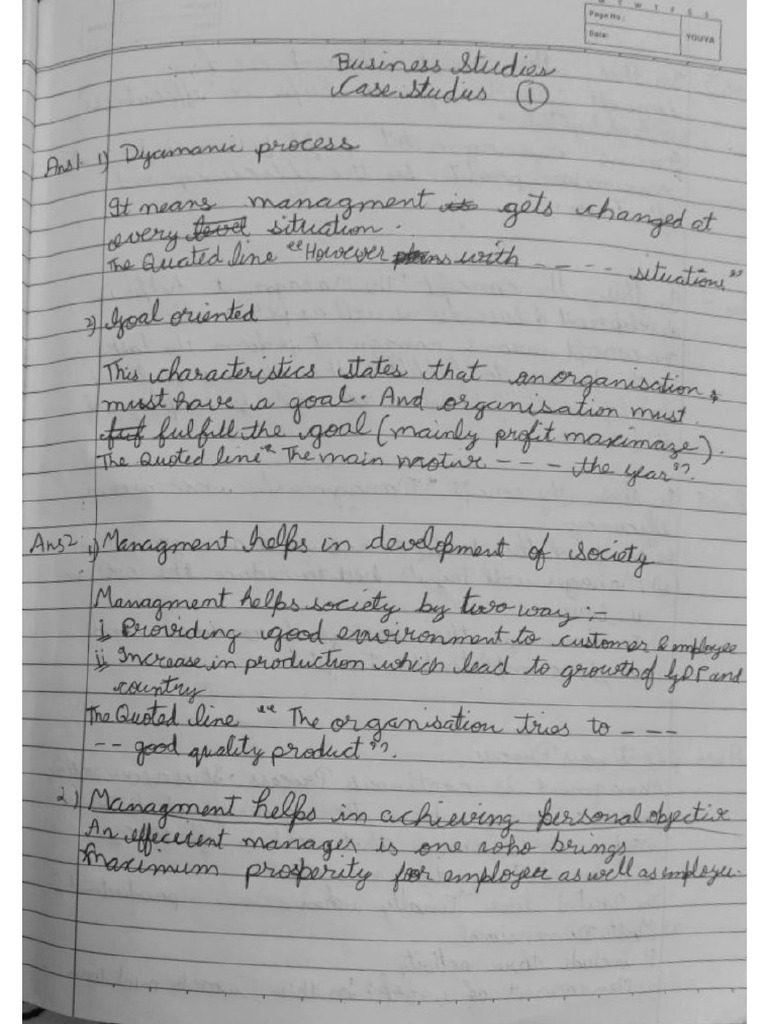 M T W T F S S
Page No.:
Date:
YOUVA
Business Studies
Case Studies 1
Ans1. 1) Dyamanic process
It means managment is gets changed at
every level situation.
The Quated line "However plans with - - - - - situations"
2) Goal oriented
This characteristics states that an organisation
must have a goal. And organisation must
fulfill the goal (mainly profit maximaze).
The Quoted line "The main - - - - the year".
Ans2. 1) Managment helps in development of society
Managment helps society by two way :-
i Providing good environment to customer & employee
ii Increase in production which lead to growth of GDP and
country
The Quoted line "The organisation tries to - - - -
- - good quality product".
2) Managment helps in achieving personal objective
An effecient manager is one who brings
maximum prosperity for employee as well as employer.